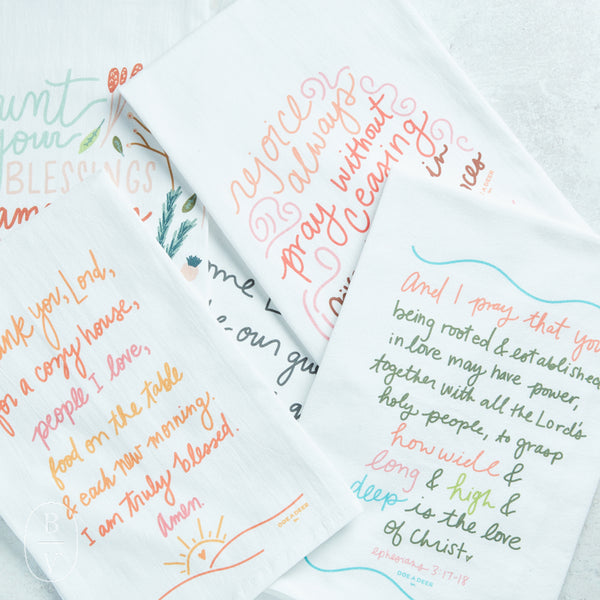 your
BLESSINGS
rejoice
always
pray without
ceasing
in
DOE A DEER
you, Lord,
for a cozy house,
people I love,
food on the table
& each new morning.
I am truly blessed.
amen.
DOE A DEER
And I pray that you
being rooted & established
in love may have power,
together with all the Lord's
holy people, to grasp
how wide &
long & high &
deep is the love
of Christ.
ephesians 3:17-18
DOE A DEER
B
V